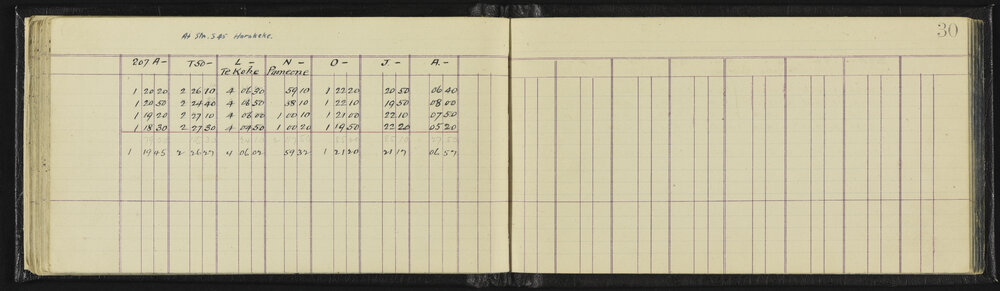 At Stn. S 45 Harakeke.
30
207 A - T50 - L - N - O - J. - A. -
Te Kohe Pomeone
1 20 20 2 26 10 4 06 30 59 10 1 22 20 20 50 06 40
1 20 50 2 24 40 4 06 50 58 10 1 22 10 19 50 08 00
1 19 20 2 27 10 4 06 00 1 00 10 1 21 00 22 10 07 50
1 18 30 2 27 30 4 04 50 1 00 20 1 19 50 22 20 05 20
1 19 45 2 26 22 4 06 02 59 32 1 21 20 21 17 06 57